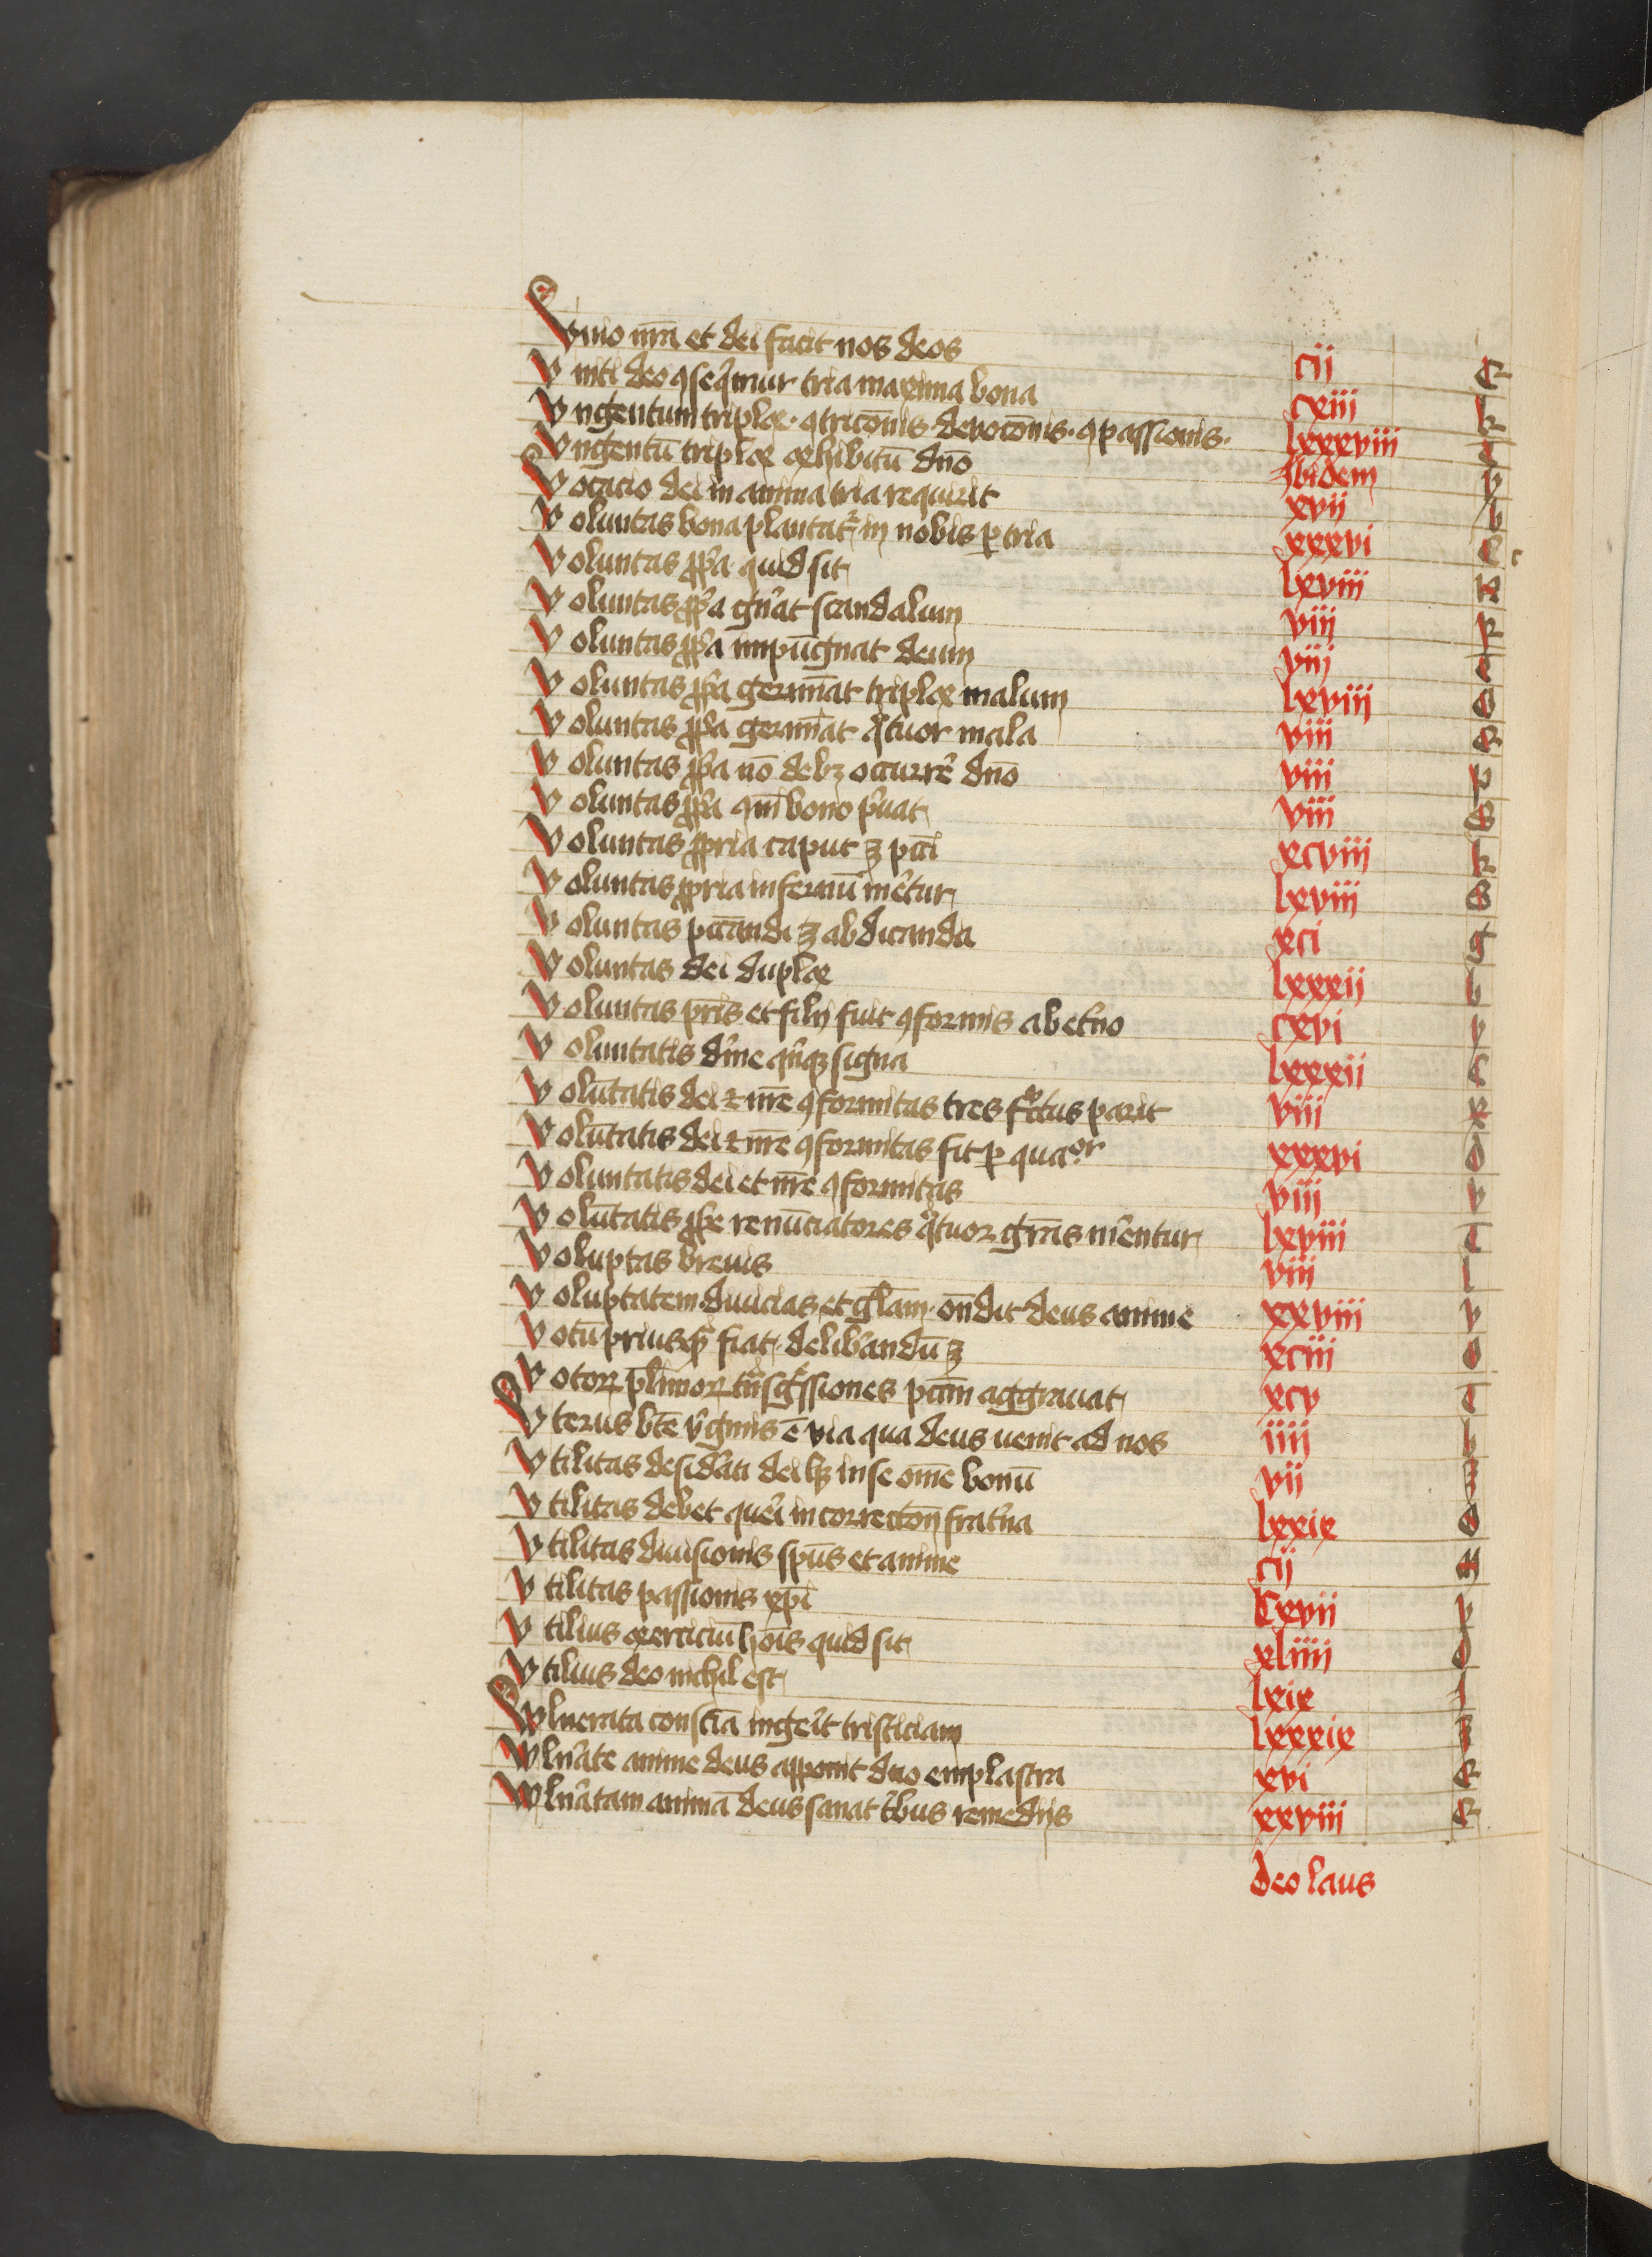 Vnio nr̄a et dei facit nos deos cij E
Vniti deo ꝯseq̄mur tria maxima bona cxiii k
Vngentum triplex · ꝯtricōnis · deuocōnis · ꝯpassionis · lxxxviii c
Vngentū triplex exhibitū dn̄o Ibidem v
Vocacio dei in anima tria requirit xvij b
Voluntas bona plantat᷑ in nobis ꝑ tria xxxvi
Voluntas ꝓp̄a quid sit lxviii n
Voluntas ꝓp̄a gn̄at scandalum viij
Voluntas ꝓp̄a impūgnat deum viij c
Voluntas ꝓp̄a germīat triplex malum lxviii o
Voluntas ꝓp̄a germīat qͣtuor mala viii E
Voluntas ꝓp̄a nō debꝫ occurrē dn̄o viii p
Voluntas ꝓp̄a bono p̄uat viii S
Voluntas ꝓpria caput ꝫ pcc̄i xcviij k
Voluntas ꝓpria infernū mēt᷑ur lxviii S
Voluntas pccāndi ꝫ abdicanda xci g
Voluntas dei duplex lxxxij b
Voluntas pr̄is et filij fuit ꝯformis ab et̄no cxvi v
Voluntatis diūine qn̄qꝫ signa lxxxii c
Volūtatis dei ⁊ nr̄e ꝯformitas tres fructus parit viij x
Volūtatis dei ⁊ nr̄e ꝯformitas fit ꝑ quaᵒʳ xxxvi o
Voluntatis dei et nr̄e ꝯformitas viij v
Volūtatis ꝓp̄e renūciatores qͣtuor gr̄as mēentur lxviii T
Voluptas breuis viij l
Voluptatem · diuicias et gl̄am · on̄dit deus anime xxviii v
Votū priusqͣ fiat · delib̄andū ꝫ xciii o
Votoꝝ pl̄imoꝝ tͣnsgͤssiones pccm̄ aggrauat xcv T
Vterus bt̄e v̄ginis ē via qua deus uenit ad nos iiij b
Vtilitas desid̄ati dei hꝫ in se om̄e bonū vij Z
Vtilitas debet quer̄i in correctōn frat̄na lxxix o
Vtilitas diuisionis sp̄us et anime cij
Vtilitas passionis xp̄i cxvij v
Vtilius exerciciū hoīs quid sit xliiij o
Vtilius deo nichil est lxix l
Vvlnerata consc̄ia inger̄it tristiciam lxxxix Z
Vvln̄ate anime deus apponit duo emplastra xvi E
Vvln̄atam animā deus sanat tͥbus remedijs xxviii E
deo laus